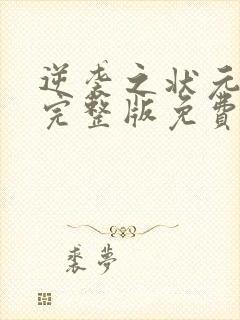 逆袭之状元
完整版免費
裘夢